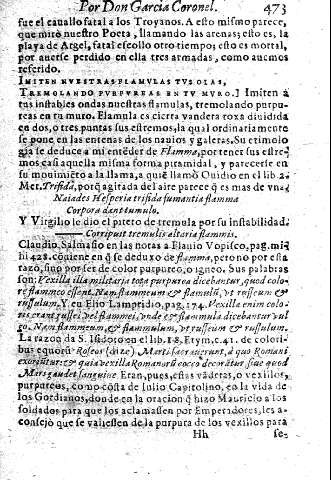 Por Don Garcia Coronel. 473
fue el cauallo fatal a los Troyanos. A esto mismo parece,
que miró nuestro Poeta, llamando las arenas; esto es, la
playa de Argel, fatal escollo otro tiempo; esto es mortal,
por auerse perdido en ella tres armadas, como auemos
referido.
IMITEN NVESTRAS FLAMVLAS TVS OLAS,
TREMOLANDO PVRPVREAS EN TV MVRO.] Imiten a
tus instables ondas nuestras flamulas, tremolando purpu-
reas en tu muro. Flamula es cierta vandera roxa diuidida
en dos, o tres puntas sus estremos, la qual ordinariamente
se pone en las entenas de los nauios y galeras. Su etimolo
gia se deduce a mi entẽder de Flamma, por tener sus estre-
mos casi aquella misma forma piramidal, y parecerse en
su mouimiẽto a la llama, a quiẽ llamò Ouidio en el lib. 2.
Met. Trifida, porq̃ agitada del aire parece q̃ es mas de vna
Naiades Hesperia trifida fumantia flamma
Corpora dant tumulo.
Y Virgilio le dio el piteto de tremula por su instabilidad.
Corripuit tremulis altaria flammis.
Claudio Salmasio en las notas a Flauio Vopisco, pag. mi-
hi 428. conuiene en q̃ se deduxo de flamma, pero no por esta
razõ, sino por ser de color purpureo, o igneo. Sus palabras
son: Vexilla illa militaria tota purpurea dicebantur, quod colo-
re flammeo essent. Nam flammeum & flammulũ, vt russeum &
russulum. Y en Elio Lampridio, pag. 174. Vexilla enim colo-
ris erant russei vel flammei, unde & flammula dicebantur vul-
go. Nam flammeum, & flammulum, vt russeum & russulum.
La razon da S. Isidoro en el lib. 18. Etym. c. 41. de colori-
bus equorũ: Roseos (dize) Marti sacrauerunt, à quo Romani
exoriũtur: & quia vexilla Romanorũ cocco decorãtur, siue quod
Mars gaudet sanguine. Eran, pues, estas vãderas, o vexillos,
purpureos, como cõsta de Iulio Capitolino, en la vida de
los Gordianos, donde en la oracion q̃ hizo Mauricio a los
soldados para que los aclamassen por Emperadores, les a-
consejò que se valiessen de la purpura de los vexillos para
Hh se-